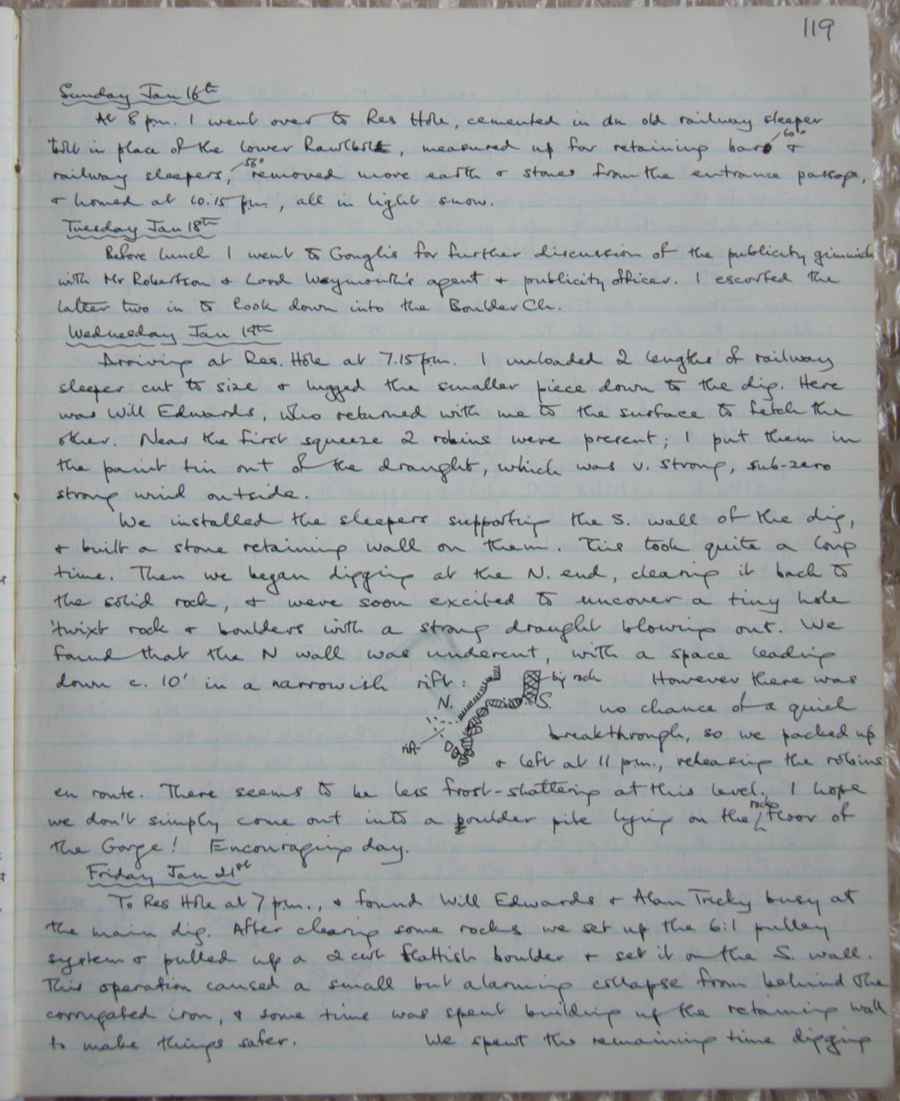 119
Sunday Jan 16th
At 8 pm. I went over to Res Hole, cemented in an old railway sleeper
bolt in place of the lower Rawlbolt, measured up for retaining bars 60" &
railway sleepers, 58" removed more earth & stones from the entrance passage,
& homed at 10.15 pm, all in light snow.
Tuesday Jan 18th
Before lunch I went to Gough's for further discussion of the publicity gimmick
with Mr Robertson & Lord Weymouth's agent & publicity officer. I escorted the
latter two in to look down into the Boulder Ch.
Wednesday Jan 19th
Arriving at Res. Hole at 7.15 pm. I unloaded 2 lengths of railway
sleeper cut to size & lugged the smaller piece down to the dig. Here
was Will Edwards, who returned with me to the surface to fetch the
other. Near the first squeeze 2 robins were present; I put them in
the paint tin out of the draught, which was v. strong, sub-zero
strong wind outside.
We installed the sleepers supporting the S. wall of the dig,
& built a stone retaining wall on them. This took quite a long
time. Then we began digging at the N. end, clearing it back to
the solid rock, & were soon excited to uncover a tiny hole
'twixt rock & boulders with a strong draught blowing out. We
found that the N wall was undercut, with a space leading
down c. 10' in a narrowish rift: big rock However there was
N. S. no chance of a quick
breakthrough, so we packed up
& left at 11 pm., releasing the robins
en route. There seems to be less frost-shattering at this level. I hope
we don't simply come out into a boulder pile lying on the rocky floor of
the Gorge! Encouraging day.
Friday Jan 21st
To Res Hole at 7 p.m., & found Will Edwards & Alan Tricky busy at
the main dig. After clearing some rocks we set up the 6:1 pulley
system & pulled up a 2 cwt flattish boulder & set it on the S. wall.
This operation caused a small but alarming collapse from behind the
corrugated iron, & some time was spent building up the retaining wall
to make things safer. We spent the remaining time digging